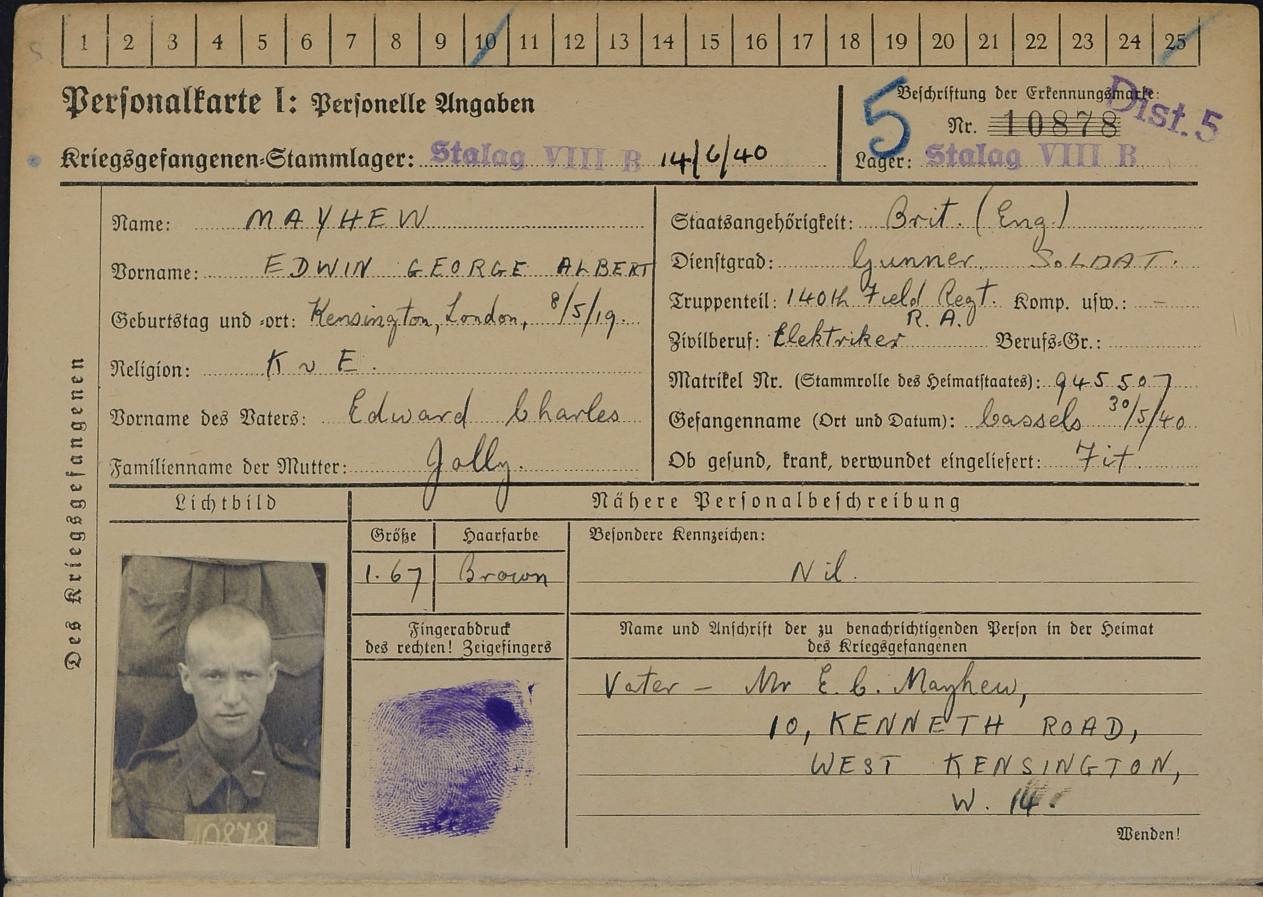 1 2 3 4 5 6 7 8 9 10 11 12 13 14 15 16 17 18 19 20 21 22 23 24 25
Personalkarte I: Personelle Angaben
Kriegsgefangenen-Stammlager: Stalag VIII B 14/6/40
5
Beschriftung der Erkennungsmarke:
Nr. 10878
Dist. 5
Lager: Stalag VIII B
Des Kriegsgefangenen
Name: MAYHEW
Vorname: EDWIN GEORGE ALBERT
Geburtstag und -ort: Kensington, London, 8/5/19.
Religion: K v E.
Vorname des Vaters: Edward Charles
Familienname der Mutter: Jolly.
Staatsangehörigkeit: Brit. (Eng.)
Dienstgrad: Gunner. SOLDAT.
Truppenteil: 140th Field Regt. Komp. usw.: -
R. A.
Zivilberuf: Elektriker Berufs-Gr.:
Matrikel Nr. (Stammrolle des Heimatstaates): 945507
Gefangenname (Ort und Datum): Cassels 30/5/40
Ob gesund, krank, verwundet eingeliefert: Fit.
Lichtbild
10878
Nähere Personalbeschreibung
Größe Haarfarbe
1.67 Brown
Besondere Kennzeichen:
Nil.
Fingerabdruck
des rechten! Zeigefingers
Name und Anschrift der zu benachrichtigenden Person in der Heimat
des Kriegsgefangenen
Vater - Mr E. C. Mayhew,
10, KENNETH ROAD,
WEST KENSINGTON,
W. 14.
Wenden!